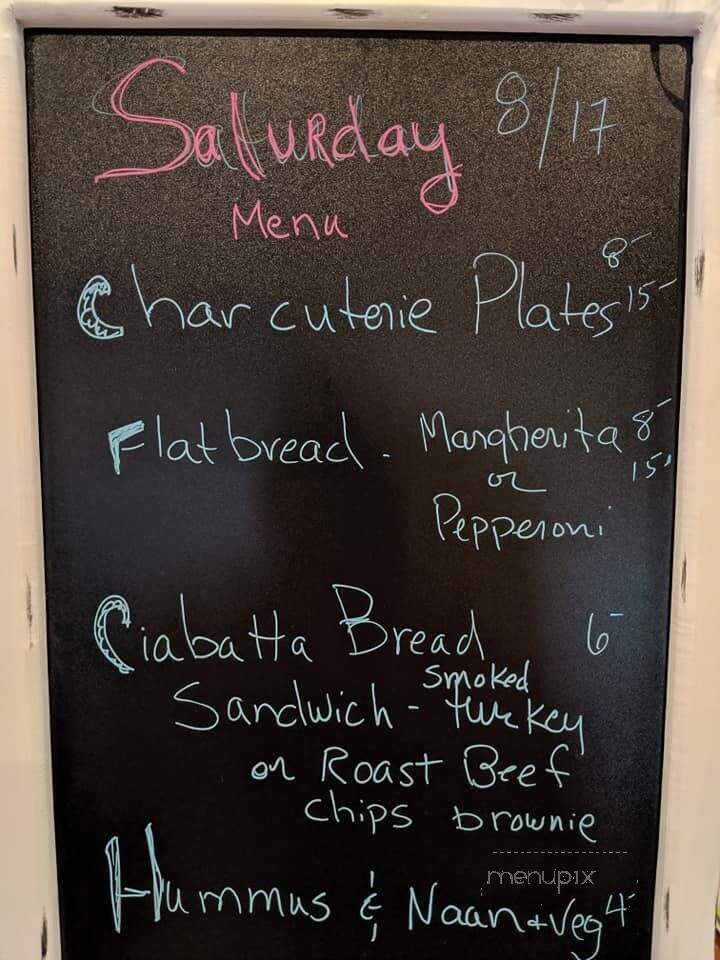 Saturday 8/17
Menu
8-
Charcuterie Plates 15-
Flatbread - Margherita 8-
or 15-
Pepperoni
Ciabatta Bread 6-
smoked
Sandwich - turkey
or Roast Beef
chips brownie
menupix
Hummus & Naan + Veg 4-